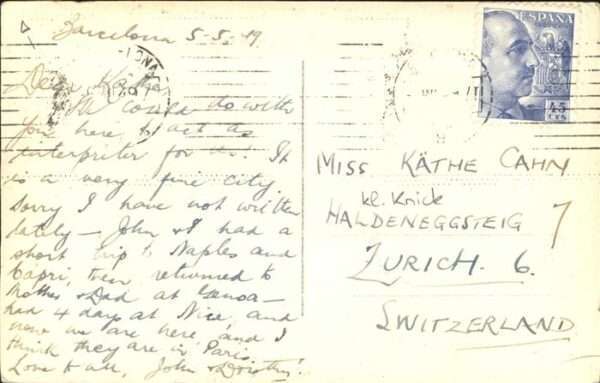 Barcelona 5.5.49.
Dear Käthe,
We could do with
you here to act as
interpreter for us! It
is a very fine city.
Sorry I have not written
lately – John & I had a
short trip to Naples and
Capri, then returned to
Mother & Dad at Genoa –
had 4 days at Nice, and
now we are here, and I
think they are in Paris.
Love to all, John & Dorothy
ESPAÑA
45
CTS
MISS KÄTHE CAHN
kl. Knick
HALDENEGGSTEIG 7
ZURICH. 6.
SWITZERLAND